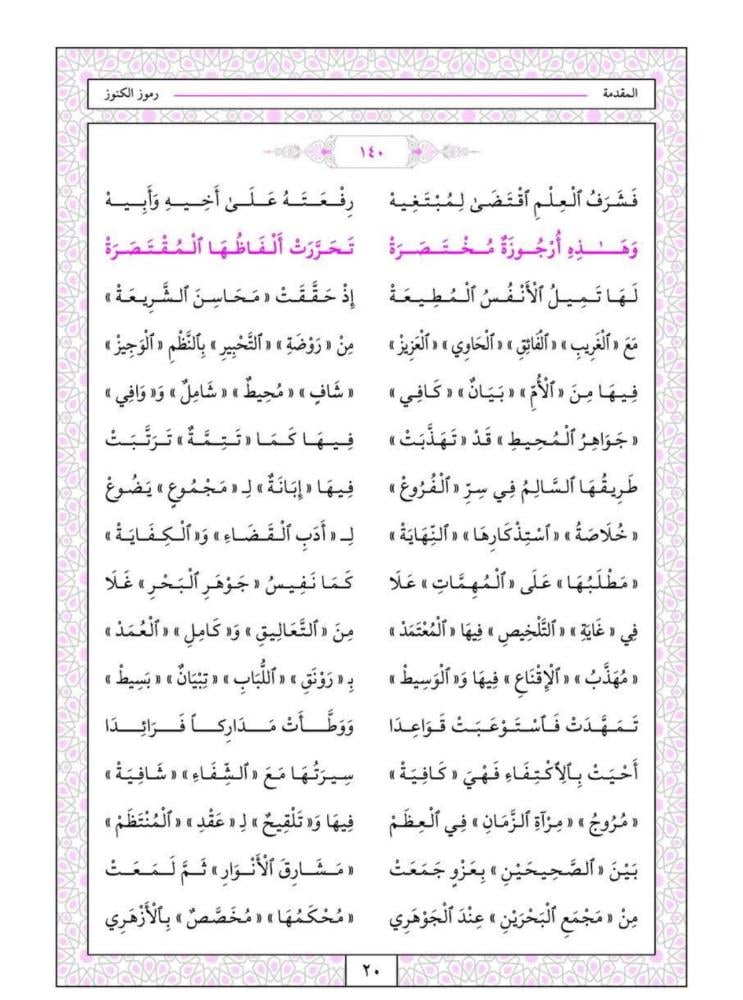 المقدمة رموز الكنوز
١٤٠
فَشَرَفُ ٱلْعِلْمِ ٱقْتَضَىٰ لِمُبْتَغِيهْ رِفْعَتَهُ عَلَىٰ أَخِيهِ وَأَبِيهْ
وَهَـٰذِهِ أُرْجُوزَةٌ مُخْتَصَرَةْ تَحَرَّرَتْ أَلْفَاظُهَا ٱلْمُقْتَصَرَةْ
لَهَا تَمِيلُ ٱلْأَنْفُسُ ٱلْمُطِيعَةْ إِذْ حَقَّقَتْ «مَحَاسِنَ ٱلشَّرِيعَةْ»
مَعَ «ٱلْغَرِيبِ» «ٱلْفَائِقِ» «ٱلْحَاوِي» «ٱلْعَزِيزْ» مِنْ «رَوْضَةِ» «ٱلتَّحْبِيرِ» بِٱلنَّظْمِ «ٱلْوَجِيزْ»
فِيهَا مِنَ «ٱلْأُمِّ» «بَيَانٌ» «كَافِي» «شَافٍ» «مُحِيطٌ» «شَامِلٌ» وَ«وَافِي»
«جَوَاهِرُ ٱلْمُحِيطِ» قَدْ «تَهَذَّبَتْ» فِيهَا كَمَا «تَتِمَّةٌ» تَرَتَّبَتْ
طَرِيقُهَا ٱلسَّالِمُ فِي سِرِّ «ٱلْفُرُوعْ» فِيهَا «إِبَانَةٌ» لِـ«مَجْمُوعٍ» يَضُوعْ
«خُلَاصَةُ» «ٱسْتِذْكَارِهَا» «ٱلنِّهَايَةْ» لِـ«أَدَبِ ٱلْقَضَاءِ» وَ«ٱلْكِفَايَةْ»
«مَطْلَبُهَا» عَلَى «ٱلْمُهِمَّاتِ» عَلَا كَمَا نَفِيسُ «جَوْهَرِ ٱلْبَحْرِ» غَلَا
فِي «غَايَةِ» «ٱلتَّلْخِيصِ» فِيهَا «ٱلْمُعْتَمَدْ» مِنَ «ٱلتَّعَالِيقِ» وَ«كَامِلِ» «ٱلْعُمَدْ»
«مُهَذَّبُ» «ٱلْإِقْنَاعِ» فِيهَا وَ«ٱلْوَسِيطْ» بِـ«رَوْنَقِ» «ٱللُّبَابِ» «تِبْيَانٌ» «بَسِيطْ»
تَمَهَّدَتْ فَٱسْتَوْعَبَتْ قَوَاعِدَا وَوَطَّأَتْ مَدَارِكاً فَرَائِدَا
أَحْيَتْ بِٱلِٱكْتِفَاءِ فَهْيَ «كَافِيَةْ» سِيرَتُهَا مَعَ «ٱلشِّفَاءِ» «شَافِيَةْ»
«مُرُوجُ» «مِرْآةِ ٱلزَّمَانِ» فِي ٱلْعِظَمْ فِيهَا وَ«تَلْقِيحٌ» لِـ«عَقْدِ» «ٱلْمُنْتَظَمْ»
بَيْنَ «ٱلصَّحِيحَيْنِ» بِعَزْوٍ جَمَعَتْ «مَشَارِقَ ٱلْأَنْوَارِ» ثَمَّ لَمَعَتْ
مِنْ «مَجْمَعِ ٱلْبَحْرَيْنِ» عِنْدَ ٱلْجَوْهَرِي «مُحْكَمُهَا» «مُخَصَّصٌ» بِٱلْأَزْهَرِي
٢٠